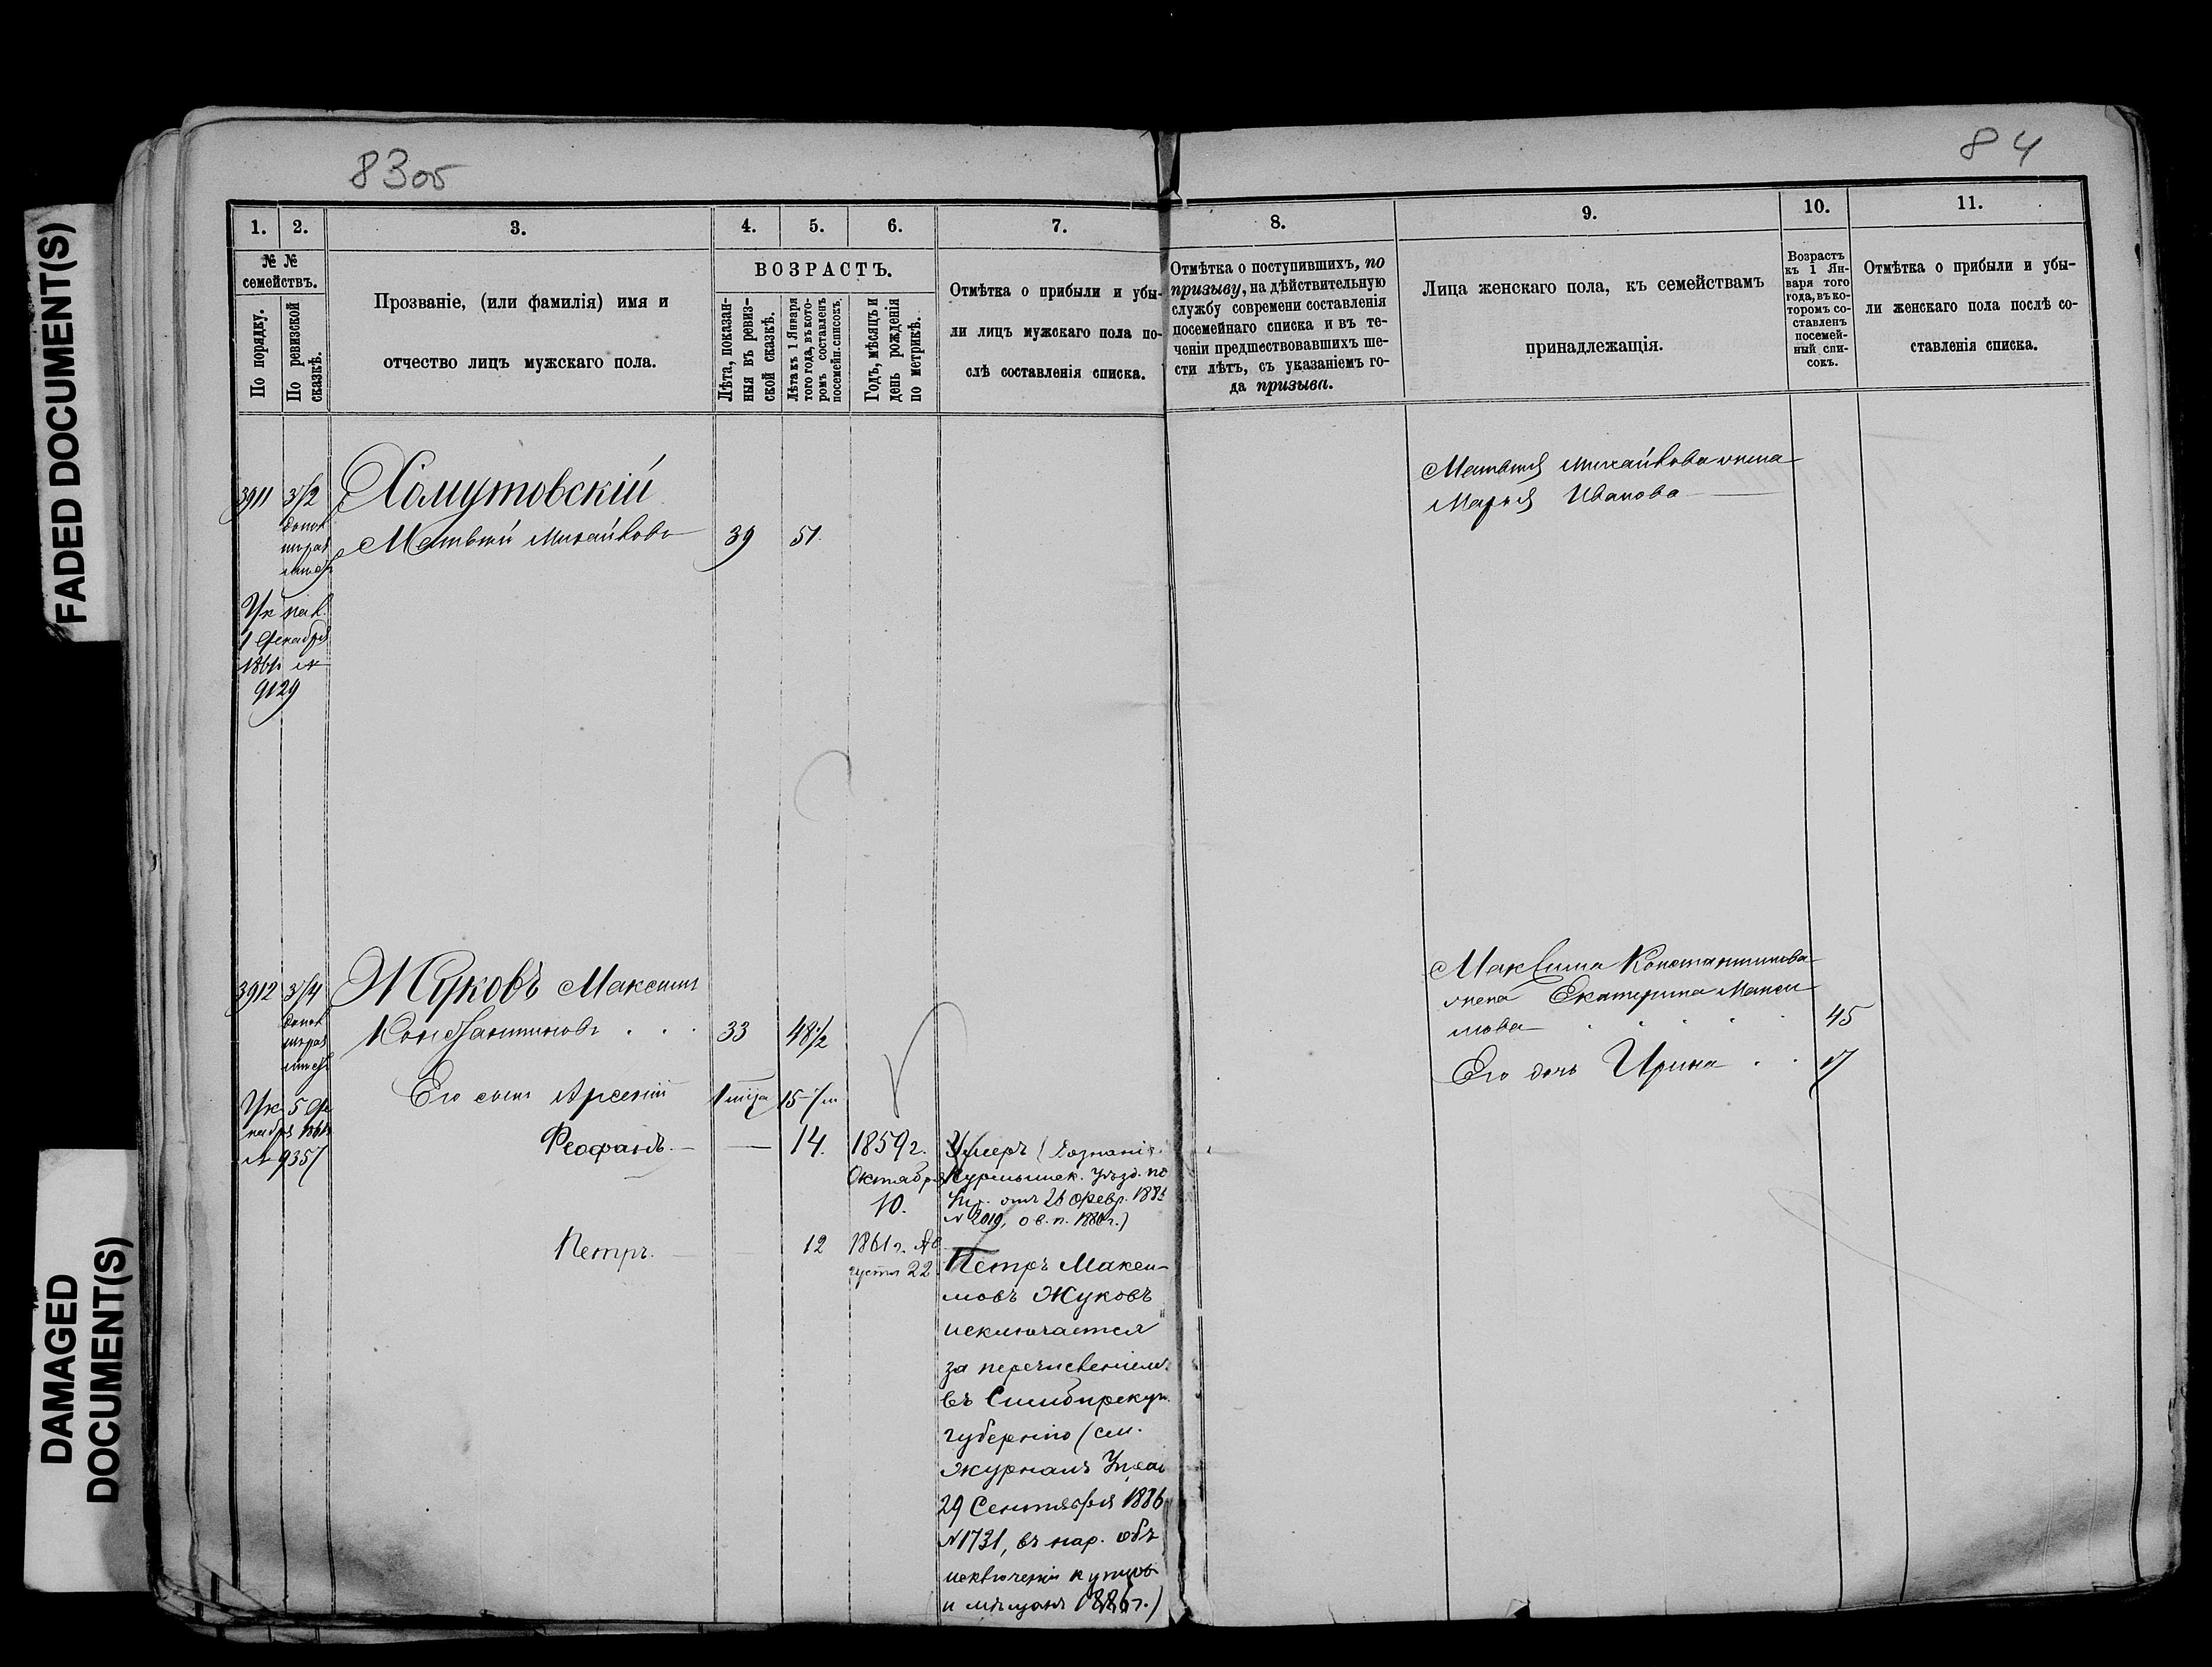 FADED DOCUMENT(S)
DAMAGED
DOCUMENT(S)
83 об
84
1.
2.
3.
4.
5.
6.
7.
8.
9.
10.
11.
№ №
семействъ.
По порядку.
По ревизской
сказкѣ.
Прозваніе, (или фамилія) имя и
отчество лицъ мужскаго пола.
ВОЗРАСТЪ.
Лѣта, показан-
ныя въ ревиз-
ской сказкѣ.
Лѣта къ 1 Января
того года, въ кото-
ромъ составленъ
посемейн. списокъ.
Годъ, мѣсяцъ и
день рожденія
по метрикѣ.
Отмѣтка о прибыли и убы-
ли лицъ мужскаго пола по-
слѣ составленія списка.
Отмѣтка о поступившихъ, по
призыву, на дѣйствительную
службу современи составленія
посемейнаго списка и въ те-
ченіи предшествовавшихъ ше-
сти лѣтъ, съ указаніемъ го-
да призыва.
Лица женскаго пола, къ семействамъ
принадлежащія.
Возрастъ
къ 1 Ян-
варя того
года, въ ко-
торомъ со-
ставленъ
посемей-
ный спи-
сокъ.
Отмѣтка о прибыли и убы-
ли женскаго пола послѣ со-
ставленія списка.
3911 3/2
Хомутовскій
Матвѣй Михайловъ 39 51
1 Декабря
9129
Матвѣя Михайлова жена
Марья Иванова
3912 3/4
Жуковъ Максимъ
Константиновъ 33 48 1/2
Его сынъ Арсеній 15
Ук. 5 Де
кабря
№ 9357
Феофанъ. 14. 1859 г.
Октября
10.
Умеръ (дознаніе
Курмышск. уѣзд. по
отъ 26 Февр.
№ 2019,
Петръ. 12 1861 г. Ав
густа 22
Петръ Макси-
мовъ Жуковъ
исключается
за перечисленіемъ
въ Симбирскую
губернію (см.
журналъ
29 Сентября 1886
№ 1731, въ нар. объ
исключеніи купцовъ
и мѣщанъ 1886 г.)
Максима Константинова
жена Екатерина Макси
мова 45
Его дочь Ирина 17